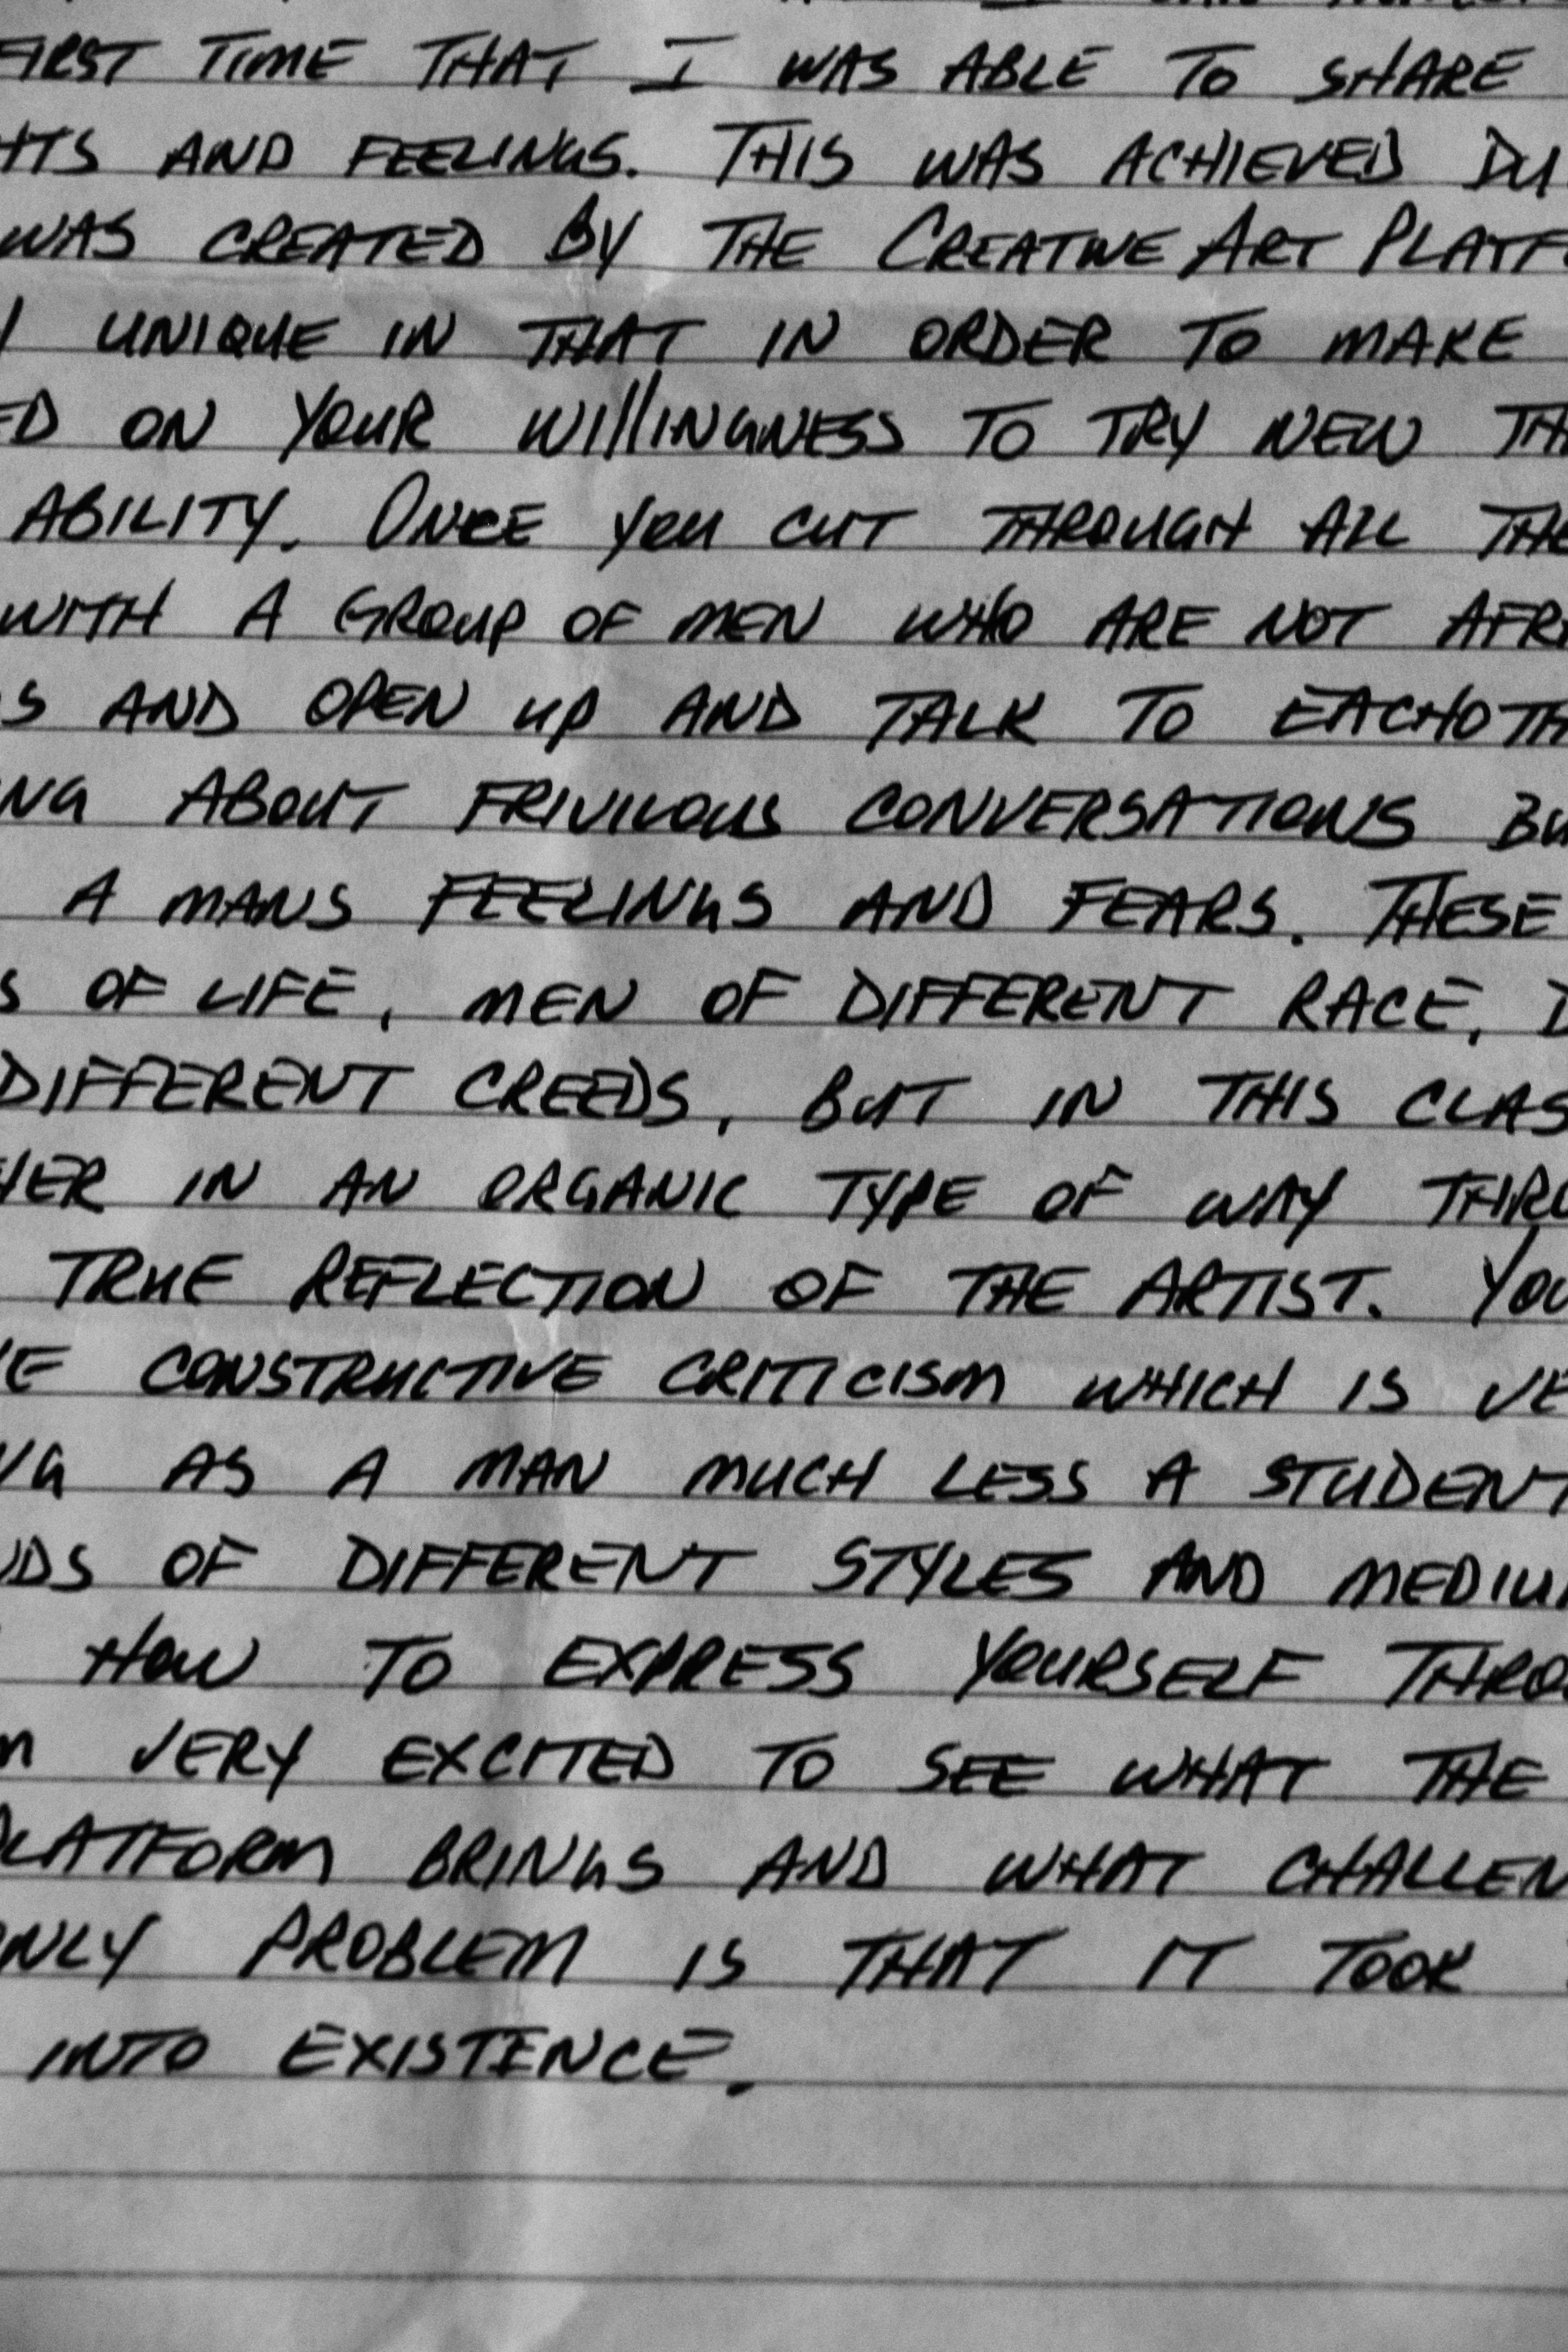 FIRST TIME THAT I WAS ABLE TO SHARE
HTS AND FEELINGS. THIS WAS ACHIEVED DU
WAS CREATED BY THE CREATIVE ART PLATF
UNIQUE IN THAT IN ORDER TO MAKE
ED ON YOUR WILLINGNESS TO TRY NEW TH
ABILITY. ONCE YOU CUT THROUGH ALL THE
WITH A GROUP OF MEN WHO ARE NOT AFR
S AND OPEN UP AND TALK TO EACHOTH
NG ABOUT FRIVILOUS CONVERSATIONS BU
A MANS FEELINGS AND FEARS. THESE
S OF LIFE, MEN OF DIFFERENT RACE, D
DIFFERENT CREEDS, BUT IN THIS CLAS
HER IN AN ORGANIC TYPE OF WAY THRO
TRUE REFLECTION OF THE ARTIST. YOU
E CONSTRUCTIVE CRITICISM WHICH IS VE
NG AS A MAN MUCH LESS A STUDENT
NDS OF DIFFERENT STYLES AND MEDIUM
HOW TO EXPRESS YOURSELF THRO
M VERY EXCITED TO SEE WHAT THE
PLATFORM BRINGS AND WHAT CHALLEN
ONLY PROBLEM IS THAT IT TOOK
INTO EXISTENCE.